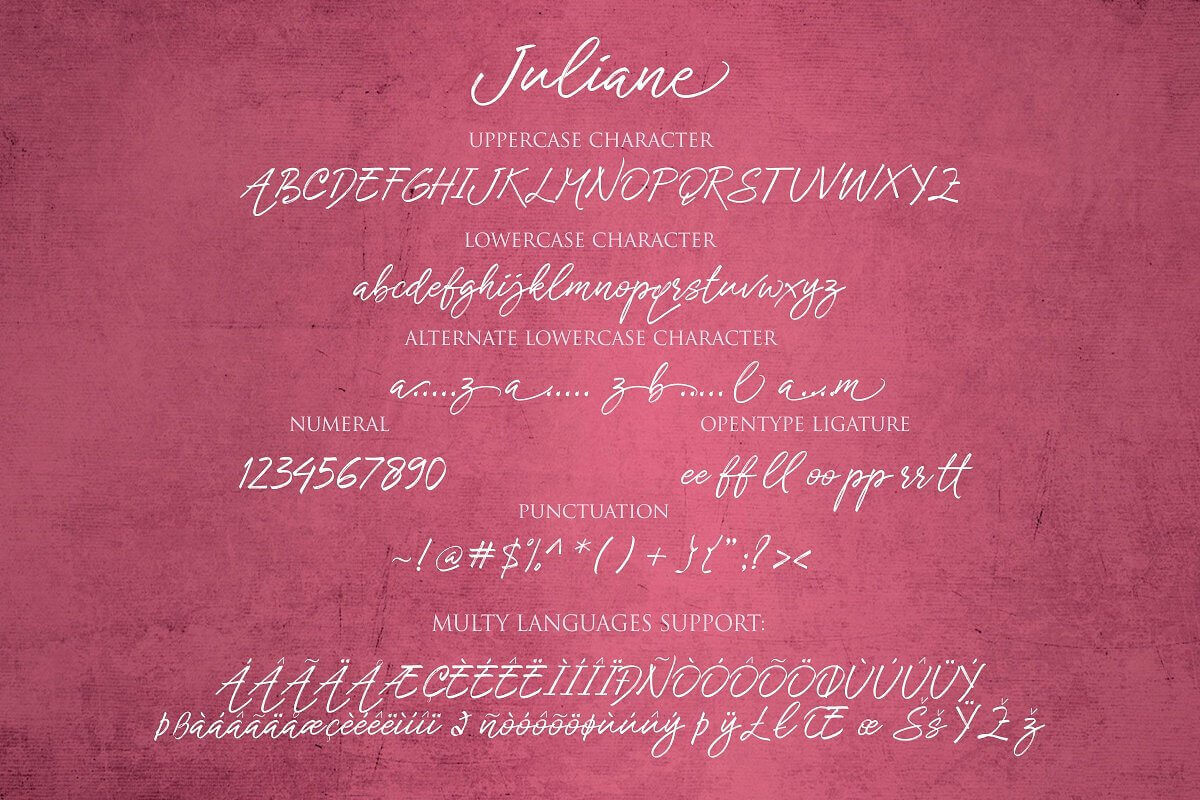 Juliane
UPPERCASE CHARACTER
ABCDEFGHIJKLMNOPQRSTUVWXYZ
LOWERCASE CHARACTER
abcdefghijklmnopqrstuvwxyz
ALTERNATE LOWERCASE CHARACTER
a.....z a..... z b.....l a...m
NUMERAL
1234567890
OPENTYPE LIGATURE
ee ff ll oo pp rr tt
PUNCTUATION
~!@#$%^*()+}{";?><
MULTY LANGUAGES SUPPORT: